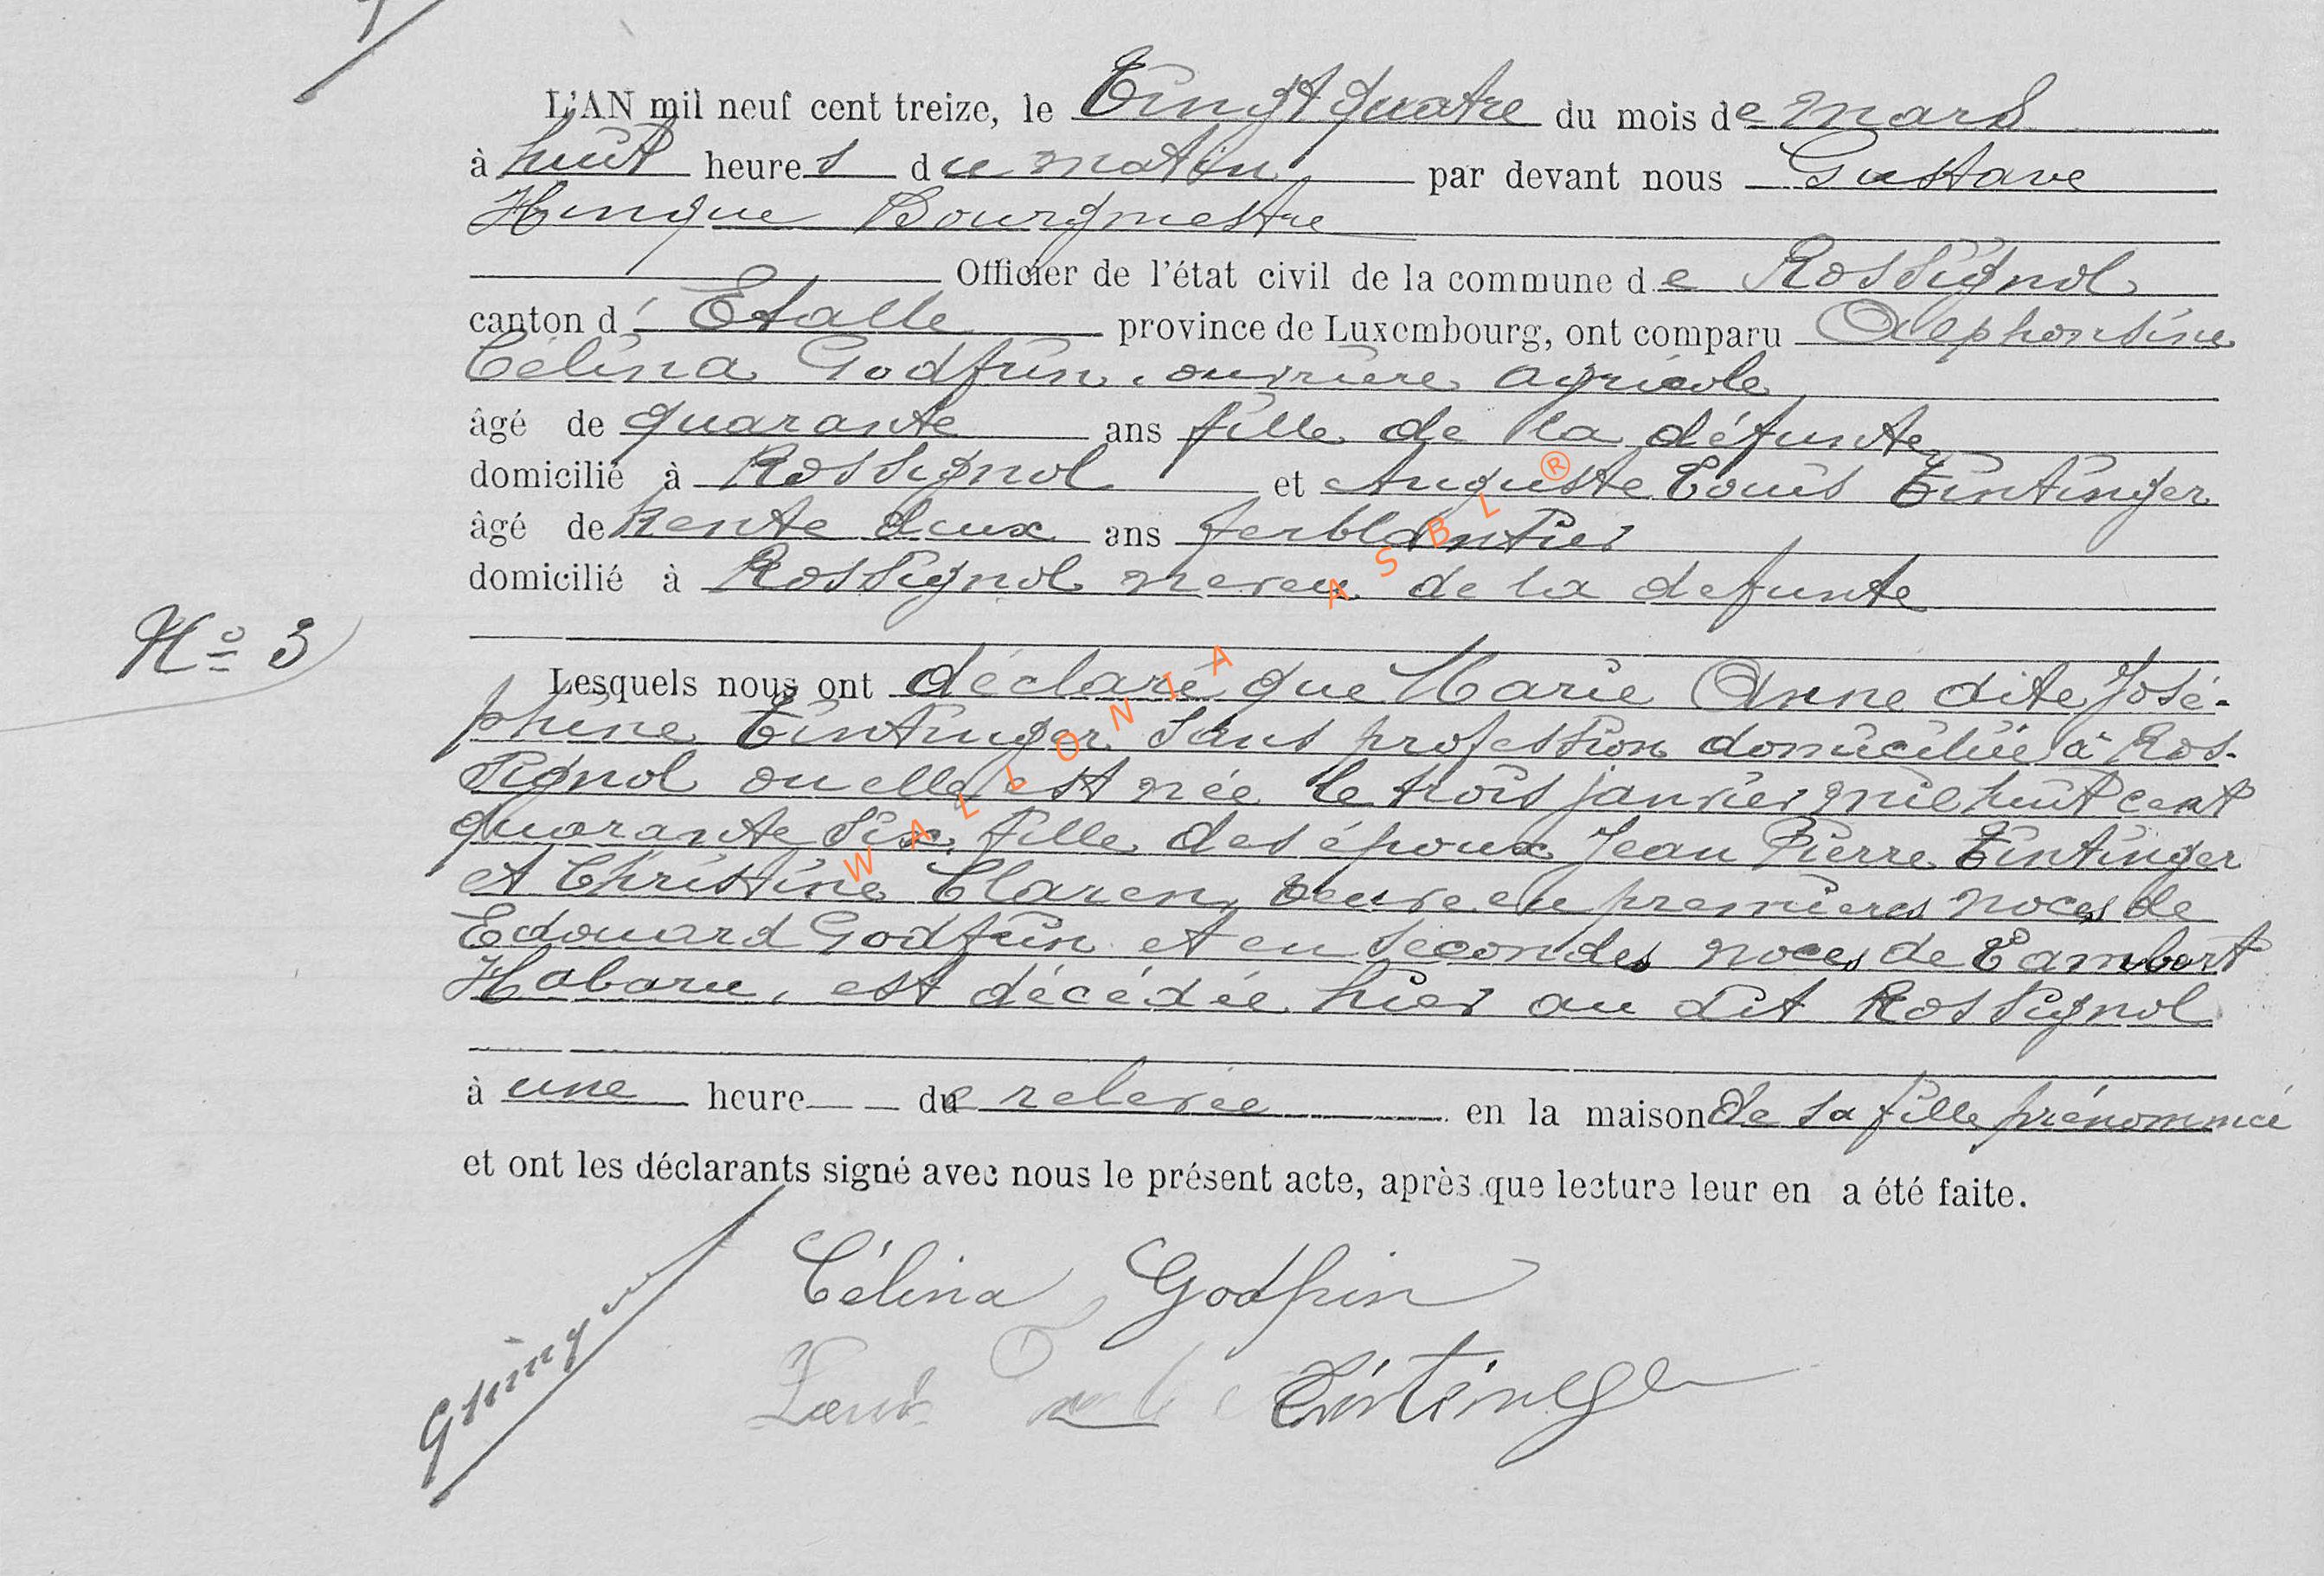 L'AN mil neuf cent treize, le Vingt quatre du mois de mars
à huit heures du matin par devant nous Gustave
Hinque Bourgmestre
Officier de l'état civil de la commune de Rossignol
canton d'Etalle province de Luxembourg, ont comparu Alphonsine
Célina Godfrin, ouvrière agricole
âgé de quarante ans fille de la défunte
domicilié à Rossignol et Auguste Louis Tintinger
âgé de trente deux ans ferblantier
domicilié à Rossignol neveu de la defunte
No 3
Lesquels nous ont déclaré que Marie Anne dite José-
phine Tintinger sans profession domiciliée à Ros-
signol ou elle est née le trois janvier mil huit cent
quarante six, fille des époux Jean Pierre Tintinger
et Christine Claren, veuve en premières noces de
Edouard Godfrin et en secondes noces de Lambert
Habaru, est décédée hier au dit Rossignol
à une heure de relevée en la maison de sa fille prénommée
et ont les déclarants signé avec nous le présent acte, après que lecture leur en a été faite.
Célina Godfrin
Tintinger
GHinque
WALLONIA ASBL ®